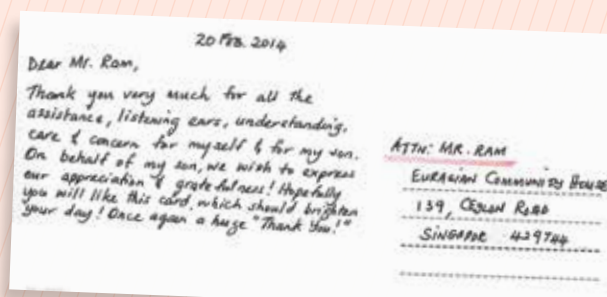 20 FEB. 2014
Dear Mr. Ram,
Thank you very much for all the
assistance, listening ears, understanding,
care & concern for myself & for my son.
On behalf of my son, we wish to express
our appreciation & gratefulness! Hopefully
you will like this card, which should brighten
your day! Once again a huge "Thank You!"
ATTN: MR. RAM
EURASIAN COMMUNITY HOUSE
139, CEYLON ROAD
SINGAPORE 429744